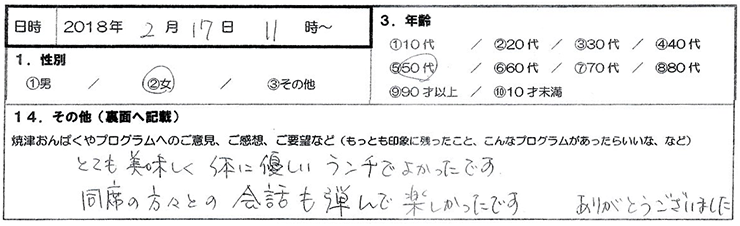 日時 2018年 2月 17日 11時～
1．性別
①男 ／ ②女 ／ ③その他
3．年齢
①10代 ／ ②20代 ／③30代 ／④40代
⑤50代 ／ ⑥60代 ／⑦70代 ／⑧80代
⑨90才以上 ／ ⑩10才未満
14．その他（裏面へ記載）
焼津おんぱくやプログラムへのご意見、ご感想、ご要望など（もっとも印象に残ったこと、こんなプログラムがあったらいいな、など）
とても美味しく 体に優しい ランチでよかったです.
同席の方々との 会話も弾んで 楽しかったです ありがとうございました